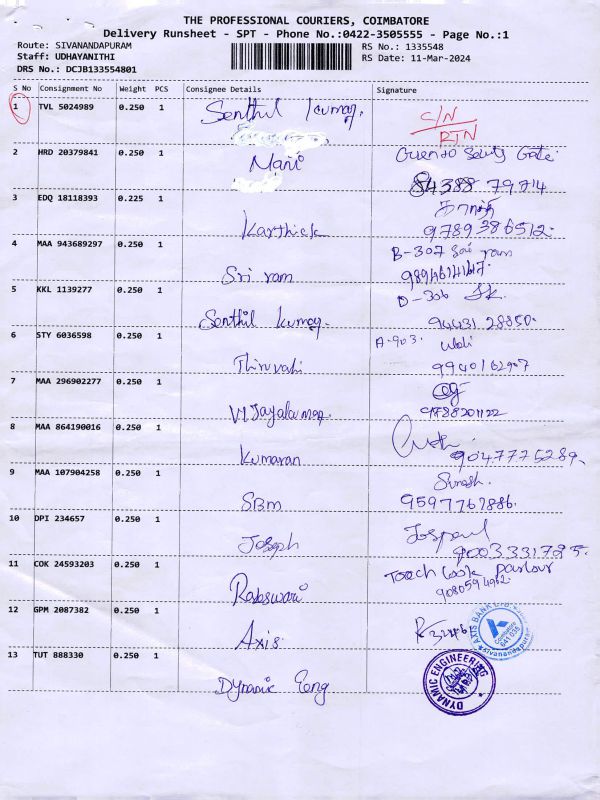 THE PROFESSIONAL COURIERS, COIMBATORE
Delivery Runsheet - SPT - Phone No.:0422-3505555 - Page No.:1
Route: SIVANANDAPURAM RS No.: 1335548
Staff: UDHAYANITHI RS Date: 11-Mar-2024
DRS No.: DCJB133554801
S No Consignment No Weight PCS Consignee Details Signature
1 TVL 5024989 0.250 1 Senthil Kumar. C/N
RTN
2 HRD 20379841 0.250 1 Mani Gate
84388 79714
3 EDQ 18118393 0.225 1 Karthick
9789386512.
4 MAA 943689297 0.250 1 Sri ram B-307 Sai ram
5 KKL 1139277 0.250 1 Senthil Kumar D-306
94431 28850.
6 STY 6036598 0.250 1 Thiruvali A-903.
9940162907
7 MAA 296902277 0.250 1 Vijayakumar
9788201122
8 MAA 864190016 0.250 1 Kumaran
9047775289
9 MAA 107904258 0.250 1 SBM
9597767886.
10 DPI 234657 0.250 1 Joseph
9003331785.
11 COK 24593203 0.250 1 Touch Look Parlour
12 GPM 2087382 0.250 1 Axis AXIS BANK
Coimbatore
641 035
Sivanandapuram
13 TUT 888330 0.250 1 Dynamic Eeng DYNAMIC ENGINEERING